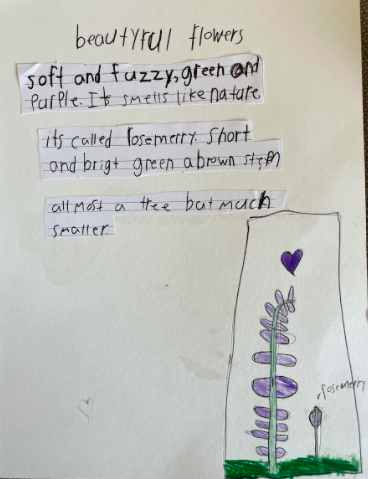 beautyful flowers
soft and fuzzy, green and
Purple. Its smells like nature
its called rosemerry. short
and brigt green a brown stem
allmost a tree but much
smaller
rosemerry